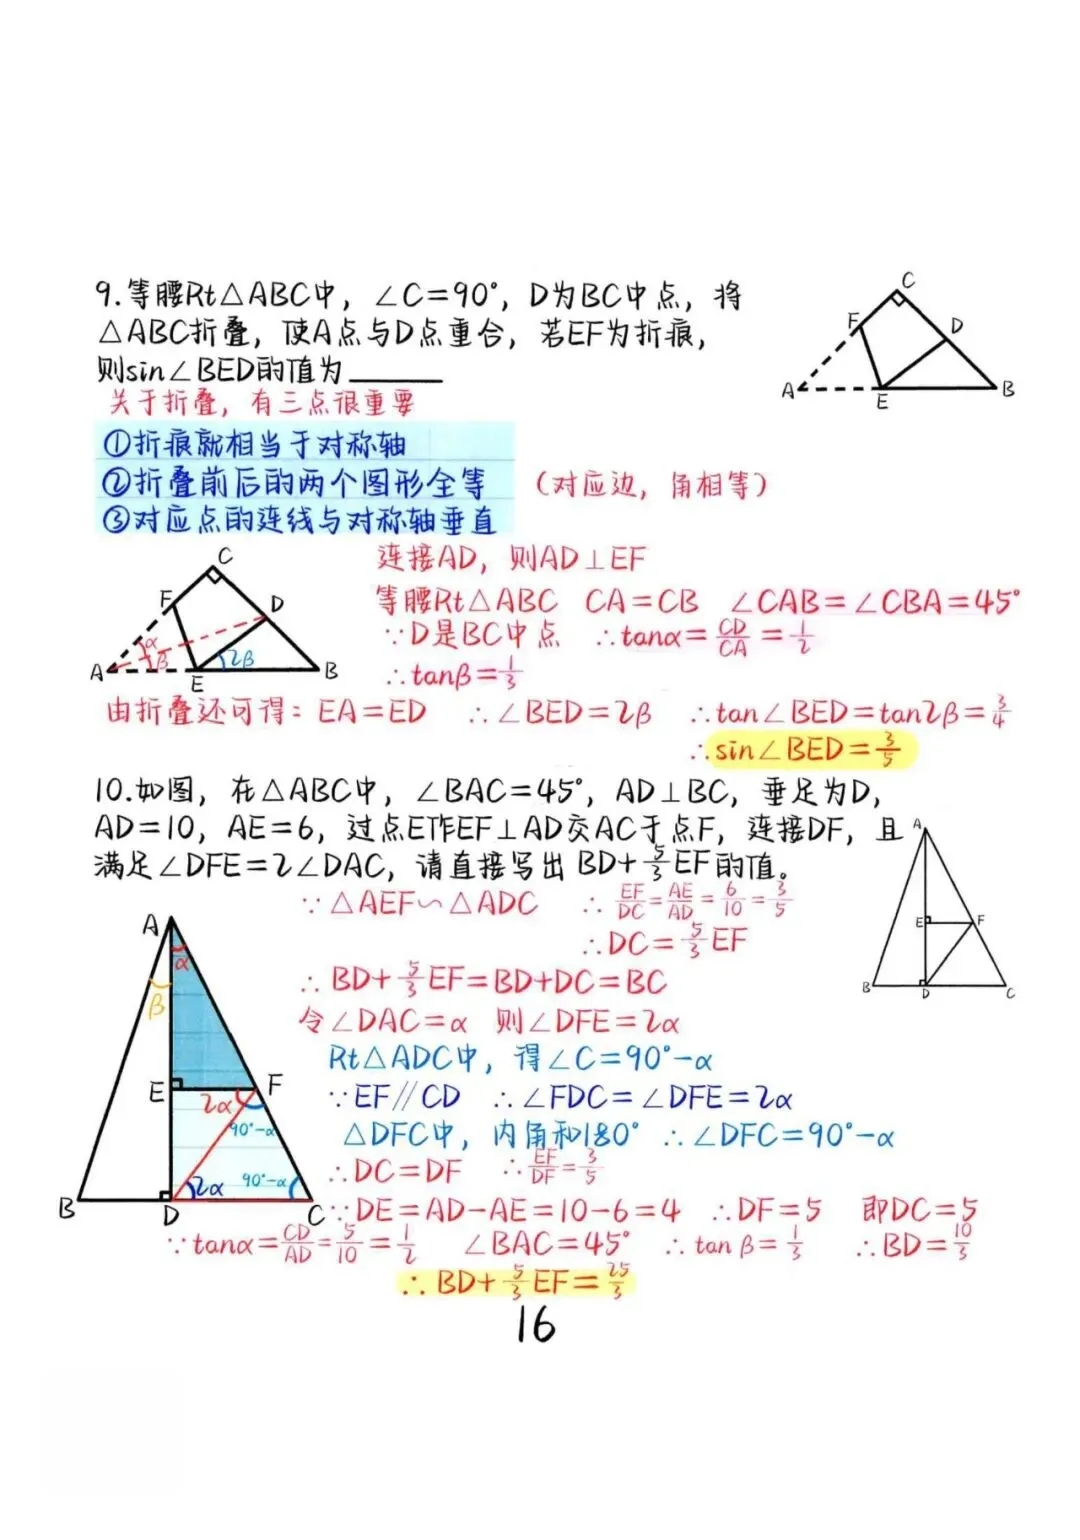 9.等腰Rt△ABC中，∠C=90°，D为BC中点，将
△ABC折叠，使A点与D点重合，若EF为折痕，
则sin∠BED的值为______
关于折叠，有三点很重要
①折痕就相当于对称轴
②折叠前后的两个图形全等 （对应边，角相等）
③对应点的连线与对称轴垂直
C
F
D
A
E
B
连接AD，则AD⊥EF
等腰Rt△ABC CA=CB ∠CAB=∠CBA=45°
∵D是BC中点 ∴tanα=CD/CA=1/2
∴tanβ=1/3
C
F
D
α
β
2β
A
E
B
由折叠还可得：EA=ED ∴∠BED=2β ∴tan∠BED=tan2β=3/4
∴sin∠BED=3/5
10.如图，在△ABC中，∠BAC=45°，AD⊥BC，垂足为D，
AD=10，AE=6，过点E作EF⊥AD交AC于点F，连接DF，且
满足∠DFE=2∠DAC，请直接写出BD+5/3EF的值。
A
E
F
B
D
C
∵△AEF∽△ADC ∴EF/DC=AE/AD=6/10=3/5
∴DC=5/3EF
∴BD+5/3EF=BD+DC=BC
令∠DAC=α 则∠DFE=2α
Rt△ADC中，得∠C=90°-α
∵EF∥CD ∴∠FDC=∠DFE=2α
△DFC中，内角和180° ∴∠DFC=90°-α
∴DC=DF ∴EF/DF=3/5
A
α
β
E
F
2α
90°-α
2α
90°-α
B
D
C
∵DE=AD-AE=10-6=4 ∴DF=5 即DC=5
∵tanα=CD/AD=5/10=1/2 ∠BAC=45° ∴tanβ=1/3 ∴BD=10/3
∴BD+5/3EF=25/3
16